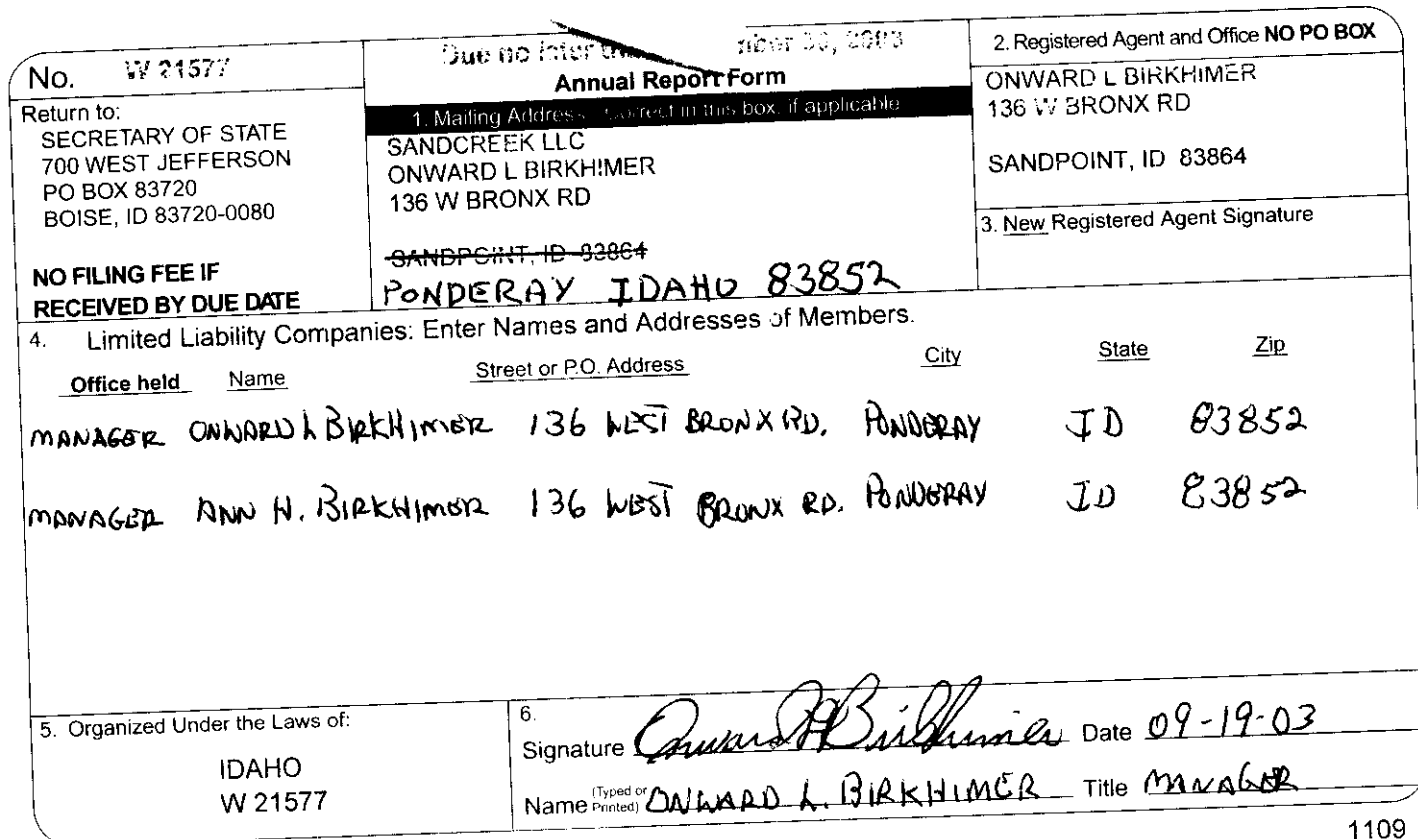 No. W 21577
Return to:
SECRETARY OF STATE
700 WEST JEFFERSON
PO BOX 83720
BOISE, ID 83720-0080
NO FILING FEE IF
RECEIVED BY DUE DATE
Due no later 30, 2003
Annual Report Form
1. Mailing Address Correct in this box, if applicable
SANDCREEK LLC
ONWARD L BIRKHIMER
136 W BRONX RD
SANDPOINT, ID 83864
PONDERAY IDAHO 83852
2. Registered Agent and Office NO PO BOX
ONWARD L BIRKHIMER
136 W BRONX RD
SANDPOINT, ID 83864
3. New Registered Agent Signature
4. Limited Liability Companies: Enter Names and Addresses of Members.
Office held Name Street or P.O. Address City State Zip
MANAGER ONWARD L BIRKHIMER 136 WEST BRONX RD. PONDERAY ID 83852
MANAGER ANN H. BIRKHIMER 136 WEST BRONX RD. PONDERAY ID 83852
5. Organized Under the Laws of:
IDAHO
W 21577
6.
Signature Onward L Birkhimer Date 09-19-03
Name (Typed or Printed) ONWARD L. BIRKHIMER Title MANAGER
1109